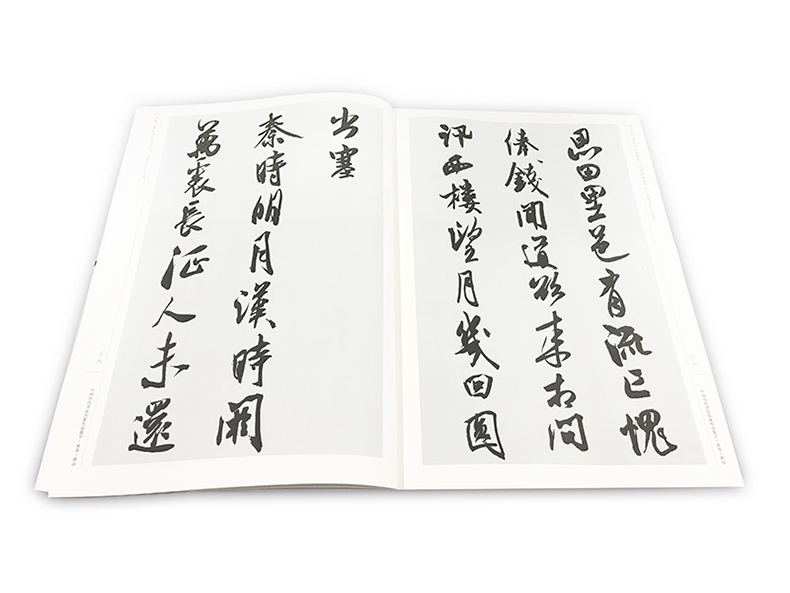 思田里邑有流亡愧
俸錢聞道欲來相問
訊西樓望月幾回圓
出塞
秦時明月漢時關
萬裏長征人未還